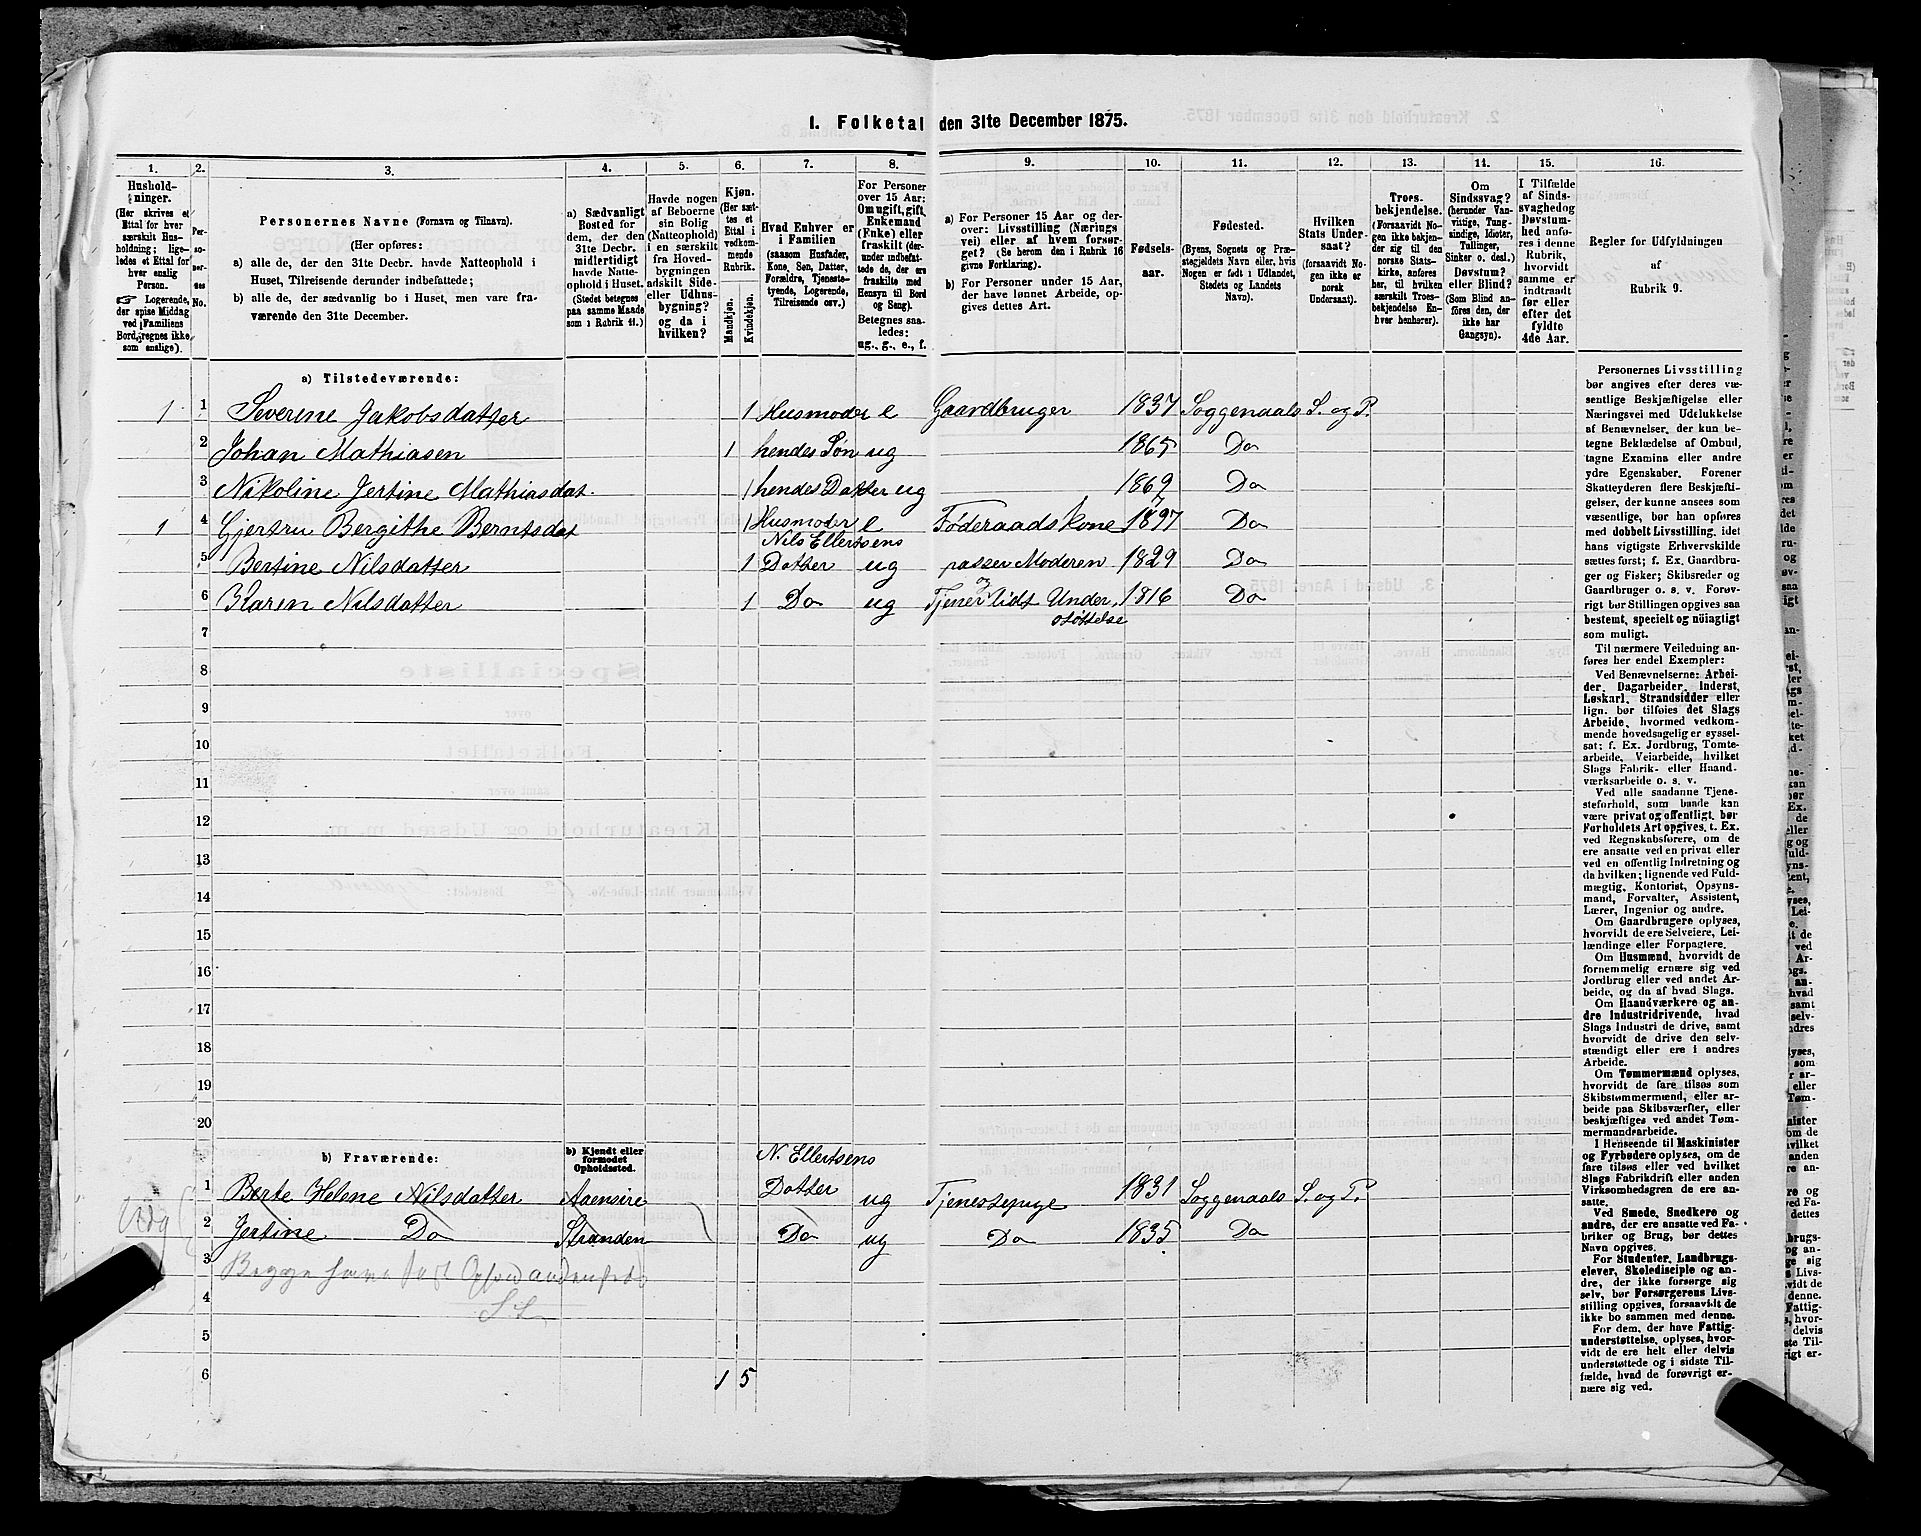 1. Folketal den 31te December 1875.
1. 2. 3. 4. 5. 6. 7. 8. 9. 10. 11. 12. 13. 14. 15. 16.
Hushold-
ninger.
(Her skrives et
Ettal for hver
særskilt Hus-
holdning; lige-
ledes et Ettal for
hver enslig
Person.
Logerende,
der spise Middag
ved Familiens
Bord, regnes ikke
som enslige).
Per-
so-
ner-
nes
No.
Personernes Navne (Fornavn og Tilnavn).
(Her opføres:
a) alle de, der den 31te Decbr. havde Natteophold i
Huset, Tilreisende derunder indbefattede;
b) alle de, der sædvanlig bo i Huset, men vare fra-
værende den 31te December.
a) Sædvanligt
Bosted for
dem, der den
31te Decbr.
midlertidigt
havde Natte-
ophold i Huset.
(Stedet betegnes
paa samme Maade
som i Rubrik 11.)
Havde nogen
af Beboerne
sin Bolig
(Natteophold)
i en særskilt
fra Hoved-
bygningen
adskilt Side-
eller Udhus-
bygning?
og da i
hvilken?
Kjøn.
(Her sæt-
tes et
Ettal i
vedkom-
mende
Rubrik.
Mandkjøn.
Kvindekjøn.
Hvad Enhver er
i Familien
(saasom Husfader,
Kone, Søn, Datter,
Forældre, Tjeneste-
tyende, Logerende,
Tilreisende osv.)
For Personer
over 15 Aar:
Om ugift, gift,
Enkemand
(Enke) eller
fraskilt (der-
under indbefat-
tede de, der ere
fraskilte med
Hensyn til Bord
og Seng).
Betegnes saa-
ledes:
ug., g., e., f.
a) For Personer 15 Aar og der-
over: Livsstilling (Nærings
vei) eller af hvem forsør-
get? (Se herom den i Rubrik 16
givne Forklaring).
b) For Personer under 15 Aar,
der have lønnet Arbeide, op-
gives dettes Art.
Fødsels-
aar.
Fødested.
(Byens, Sognets og Præ-
stegjeldets Navn eller, hvis
Nogen er født i Udlandet,
Stedets og Landets
Navn).
Hvilken
Stats Under-
saat?
(forsaavidt No-
gen ikke er
norsk
Undersaat).
Troes-
bekjendelse.
(Forsaavidt No-
gen ikke bekjen-
der sig til den
norske Stats-
kirke, anføres
her, til hvilken
særskilt Troes-
bekjendelse En-
hver henhører).
Om
Sindssvag?
(herunder Van-
vittige, Tung-
sindige, Idioter,
Tullinger,
Sinker o. desl.)
Døvstum?
eller Blind?
(Som Blind an-
føres den, der
ikke har
Gangsyn).
I Tilfælde
af Sinds-
svaghed og
Døvstum-
hed anføres
i denne
Rubrik,
hvorvidt
samme er
indtraadt
før eller
efter det
fyldte
4de Aar.
Regler for Udfyldningen
af
Rubrik 9.
a) Tilstedeværende:
1 1 Severine Jakobsdatter 1 Husmoder e Gaardbruger 1837 Soggendals S. og P.
2 Johan Mathiasen 1 hendes Søn ug 1865 Do
3 Nikoline Jertine Mathiasdat. 1 hendes Datter ug 1869 Do
1 4 Gjertru Bergithe Berntsdat 1 Husmoder e Føderaadskone Do
Nils Ellertsens
5 Bertine Nilsdatter 1 Datter ug passer Moderen 1829 Do
6 Karen Nilsdatter 1 Do ug Tjener og lidt Under- 1816 Do
støttelse
7
8
9
10
11
12
13
14
15
16
17
18
19
20
b) Fraværende:
b) Kjendt eller
formodet
Opholdssted.
N. Ellertsens
1 Berte Helene Nilsdatter Aaensire Datter ug Tjenestepige 1831 Soggendals S. og P.
2 Jertine Do Stranden Do ug Do 1835 Do
3 Begge have fast Ophold andensteds
4
5
6 1 5
Personernes Livsstilling
bør angives efter deres væ-
sentlige Beskjæftigelse eller
Næringsvei med Udelukkelse
af Benævnelser, der kun be-
tegne Beklædelse af Ombud,
tagne Examina eller andre
ydre Egenskaber. Forener
Skatteyderen flere Beskjæfti-
gelser, der kunne ansees som
væsentlige, bør han opføres
med dobbelt Livsstilling, idet
hans vigtigste Erhvervskilde
sættes først; f. Ex. Gaardbru-
ger og Fisker; Skibsreder og
Gaardbruger o. s. v. Forøv-
rigt bør Stillingen opgives saa
bestemt, specielt og nøiagtigt
som muligt.
Til nærmere Veiledning an-
føres her endel Exempler:
Ved Benævnelserne: Arbei-
der, Dagarbeider, Inderst,
Løskarl, Strandsidder eller
lign. bør tilføies det Slags
Arbeide, hvormed vedkom-
mende hovedsagelig er syssel-
sat; f. Ex. Jordbrug, Tomte-
arbeide, Veiarbeide, hvilket
Slags Fabrik- eller Haand-
værksarbeide o. s. v.
Ved alle saadanne Tjene-
steforhold, som baade kan
være privat og offentligt, bør
Forholdets Art opgives, t. Ex.
ved Regnskabsførere, om de
ere ansatte ved en privat eller
ved en offentlig Indretning og
da hvilken; lignende ved Fuld-
mægtig, Kontorist, Opsyns-
mand, Forvalter, Assistent,
Lærer, Ingeniør og andre.
Om Gaardbrugere oplyses,
hvorvidt de ere Selveiere, Lei-
lændinge eller Forpagtere.
Om Husmænd, hvorvidt de
fornemmelig ernære sig ved
Jordbrug eller ved andet Ar-
beide, og da af hvad Slags.
Om Haandværkere og an-
dre Industridrivende, hvad
Slags Industri de drive, samt
hvorvidt de drive den selv-
stændigt eller ere i andres
Arbeide.
Om Tømmermænd oplyses,
hvorvidt de fare tilsøs som
Skibstømmermænd, eller ar-
beide paa Skibsværfter, eller
beskjæftiges ved andet Tøm-
mermandsarbeide.
I Henseende til Maskinister
og Fyrbødere oplyses, om de
fare tilsøs eller ved hvilket
Slags Fabrikdrift eller anden
Virksomhed de ere an-
satte.
Ved Smede, Snedkere og
andre, der ere ansatte ved Fa-
briker og Brug, bør dettes
Navn opgives.
For Studenter, Landbrugs-
elever, Skoledisciple og an-
dre, der ikke forsørge sig
selv, bør Forsørgerens Livs-
stilling opgives, forsaavidt de
ikke bo sammen med denne.
For dem, der have Fattig-
understøttelse, oplyses, hvor-
vidt de ere helt eller delvis
understøttede og i sidste Til-
fælde, hvad de forøvrigt er-
nære sig ved.